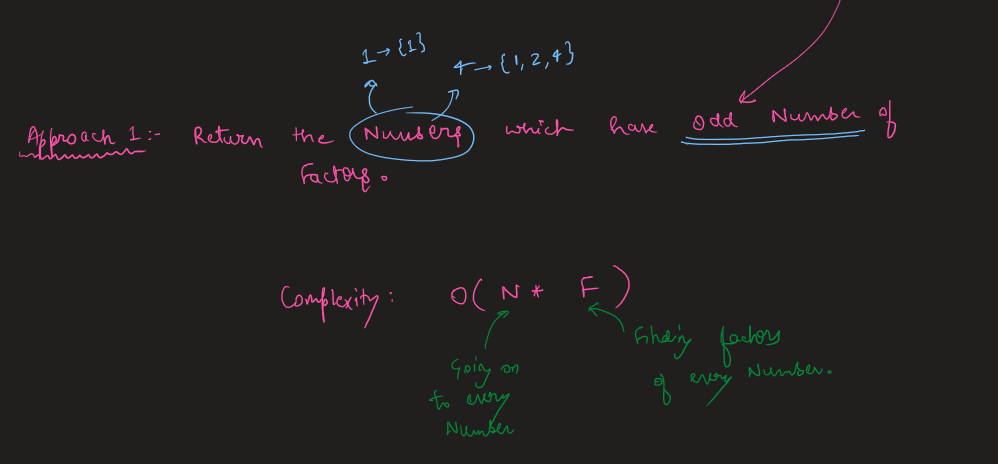 1 → {1}
4 → {1, 2, 4}
Approach 1:- Return the Numbers which have odd Number of
Factors.
Complexity: O( N * F )
Going on
to every
Number
Finding factors
of every Number.